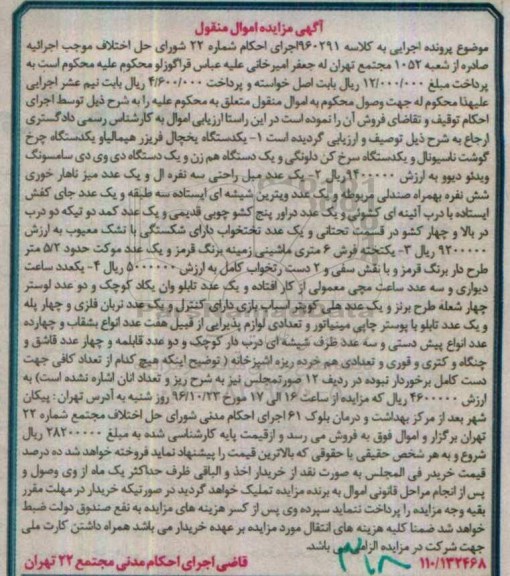 آگهی مزایده اموال منقول
موضوع پرونده اجرایی به کلاسه ۹۶۰۲۹۱اجرای احکام شماره ۲۲ شورای حل اختلاف موجب اجرائیه
صادره از شعبه ۱۰۵۲ مجتمع تهران له جعفر امیرخانی علیه عباس قراگوزلو محکوم علیه محکوم است به
پرداخت مبلغ ۱۲/۰۰۰/۰۰۰ ریال بابت اصل خواسته و پرداخت ۴/۶۰۰/۰۰۰ ریال بابت نیم عشر اجرایی
علیهذا محکوم له جهت وصول محکوم به اموال منقول متعلق به محکوم علیه را به شرح ذیل توسط اجرای
احکام توقیف و تقاضای فروش آن را نموده است در این راستا ارزیابی اموال به کارشناس رسمی دادگستری
ارجاع به شرح ذیل توصیف و ارزیابی گردیده است ۱- یکدستگاه یخچال فریزر هیمالیاو یکدستگاه چرخ
گوشت ناسیونال و یکدستگاه سرخ کن دلونگی و یک دستگاه هم زن و یک دستگاه دی وی دی سامسونگ
ویدئو دیوو به ارزش ۹۴۰۰۰۰۰ریال ۲- یک عدد مبل راحتی سه نفره ال و یک عدد میز ناهار خوری
شش نفره بهمراه صندلی مربوطه و یک عدد ویترین شیشه ای ایستاده سه طبقه و یک عدد جای کفش
ایستاده با درب آئینه ای کشوئی و یک عدد دراور پنج کشو چوبی قدیمی و یک عدد کمد دو تیکه دو درب
در بالا و چهار کشو در قسمت تحتانی و یک عدد تختخواب دارای شکستگی با تشک معیوب به ارزش
۹۲۰۰۰۰۰ ریال ۳- یکتخته فرش ۶ متری ماشینی زمینه برنگ قرمز و یک عدد موکت حدود ۵/۲ متر
طرح دار برنگ قرمز و با نقش سفی و ۲ دست رتخواب کامل به ارزش ۵۰۰۰۰۰۰ ریال ۴- یکعدد ساعت
دیواری و سه عدد ساعت مچی معمولی از کار افتاده و یک عدد تابلو وان یکاد کوچک و دو عدد لوستر
چهار شعله طرح برنز و یک عدد هلی کوپتر اسباب بازی دارای کنترل و یک عدد تریان فلزی و چهار پله
و یک عدد تابلو با پوستر چاپی مینیاتور و تعدادی لوازم پذیرایی از قبیل هفت عدد انواع بشقاب و چهارده
عدد انواع پیش دستی و سه عدد ظرف شیشه ای درب دار کوچک و دو عدد قابلمه و چهار عدد قاشق و
چنگاه و کتری و قوری و تعدادی هم خرده ریزه اشپزخانه ( توضیح اینکه هیچ کدام از تعداد کافی جهت
دست کامل برخوردار نبوده در ردیف ۱۲ صورتمجلس نیز به شرح ریز و تعداد انان اشاره نشده است) به
ارزش ۴۶۰۰۰۰۰ ریال که مزایده از ساعت ۱۶ الی ۱۷ مورخ ۹۶/۱۰/۲۳ روز شنبه به آدرس تهران : پیکان
شهر بعد از مرکز بهداشت و درمان بلوک ۶۱ اجرای احکام مدنی شورای حل اختلاف مجتمع شماره ۲۲
تهران برگزار و اموال فوق به فروش می رسد و ازقیمت پایه کارشناسی شده به مبلغ ۲۸۲۰۰۰۰۰ ریال
شروع و به هر شخص حقیقی یا حقوقی که بالاترین قیمت را پیشنهاد نماید فروخته خواهد شد ده درصد
قیمت خریدر فی المجلس به صورت نقد از خریدار اخذ و الباقی ظرف حداکثر یک ماه از وی وصول و
پس از انجام مراحل قانونی اموال به برنده مزایده تملیک خواهد گردید در صورتیکه خریدار در مهلت مقرر
بقیه وجه مزایده را پرداخت ننماید سپرده وی پس از کسر هزینه های مزایده به نفع صندوق دولت ضبط
خواهد شد ضمنا کلیه هزینه های انتقال مورد مزایده بر عهده خریدار می باشد همراه داشتن کارت ملی
جهت شرکت در مزایده الزامی می باشد.
۱۱۰/۱۳۲۴۶۸ قاضی اجرای احکام مدنی مجتمع ۲۲ تهران